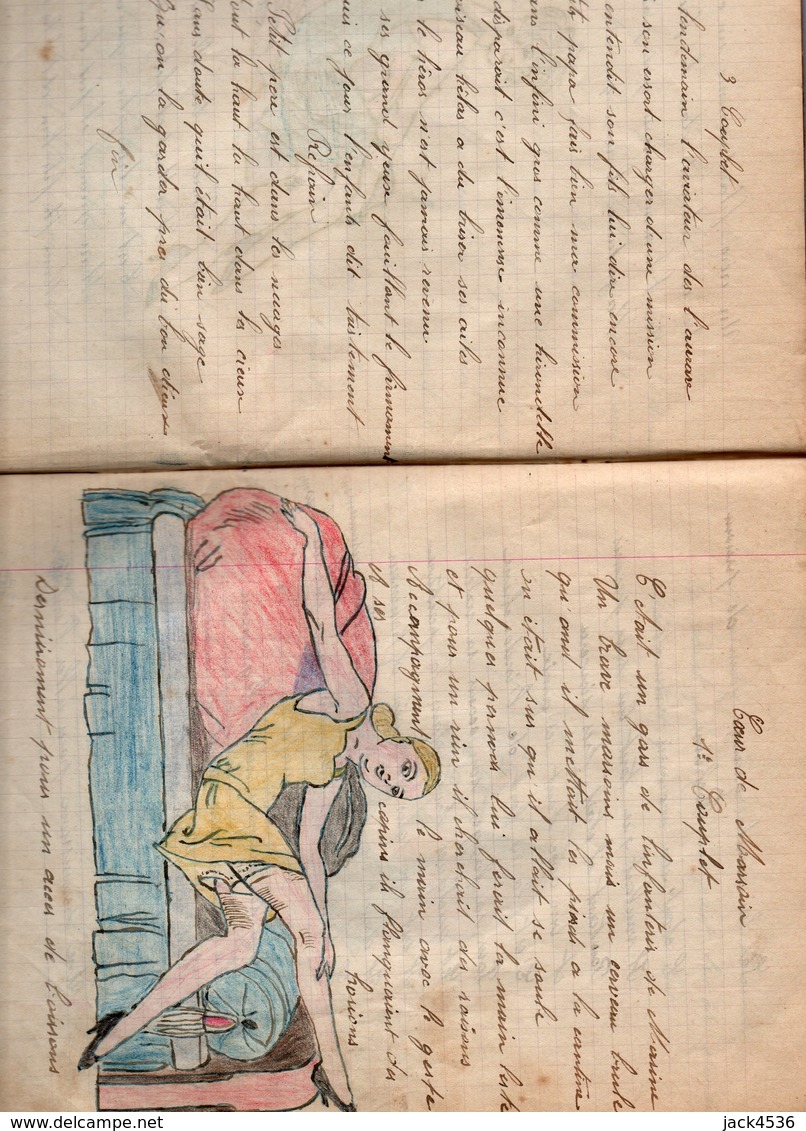 3 Couplet
lendemain l'aviateur des l'aurore
son essort charger d'une mission
entendit son fils lui dire encore
papa fais bien ma commission
l'infini gris comme une hirondelle
disparait c'est l'immense inconnue
oiseau hélas a du briser ses ailes
le héros n'est jamais revenu
ses grand yeux fouillant le firmament
ce jour l'enfants dit tristement
Refrain
Petit père est dans les nuages
tout la haut la haut dans les cieux
Sans doute qu'il était bien sage
Qu'on la garder pres du bon dieux
fin
Cœur de Marsoin
1e Couplet
C'était un gars de l'infanterie de Marine
Un brave marsoins mais un cerveau brulé
qu'and il mettait les pieds a la cantine
on était sur qu'il allait se saoulé
quelques pernods lui ferait la main leste
et pour un rien il cherchait des raisons
Accompagnent le main avec le geste
A ses copins ils flanquaient des
horions
Dernièrement pour un accu de boissons
jack4536